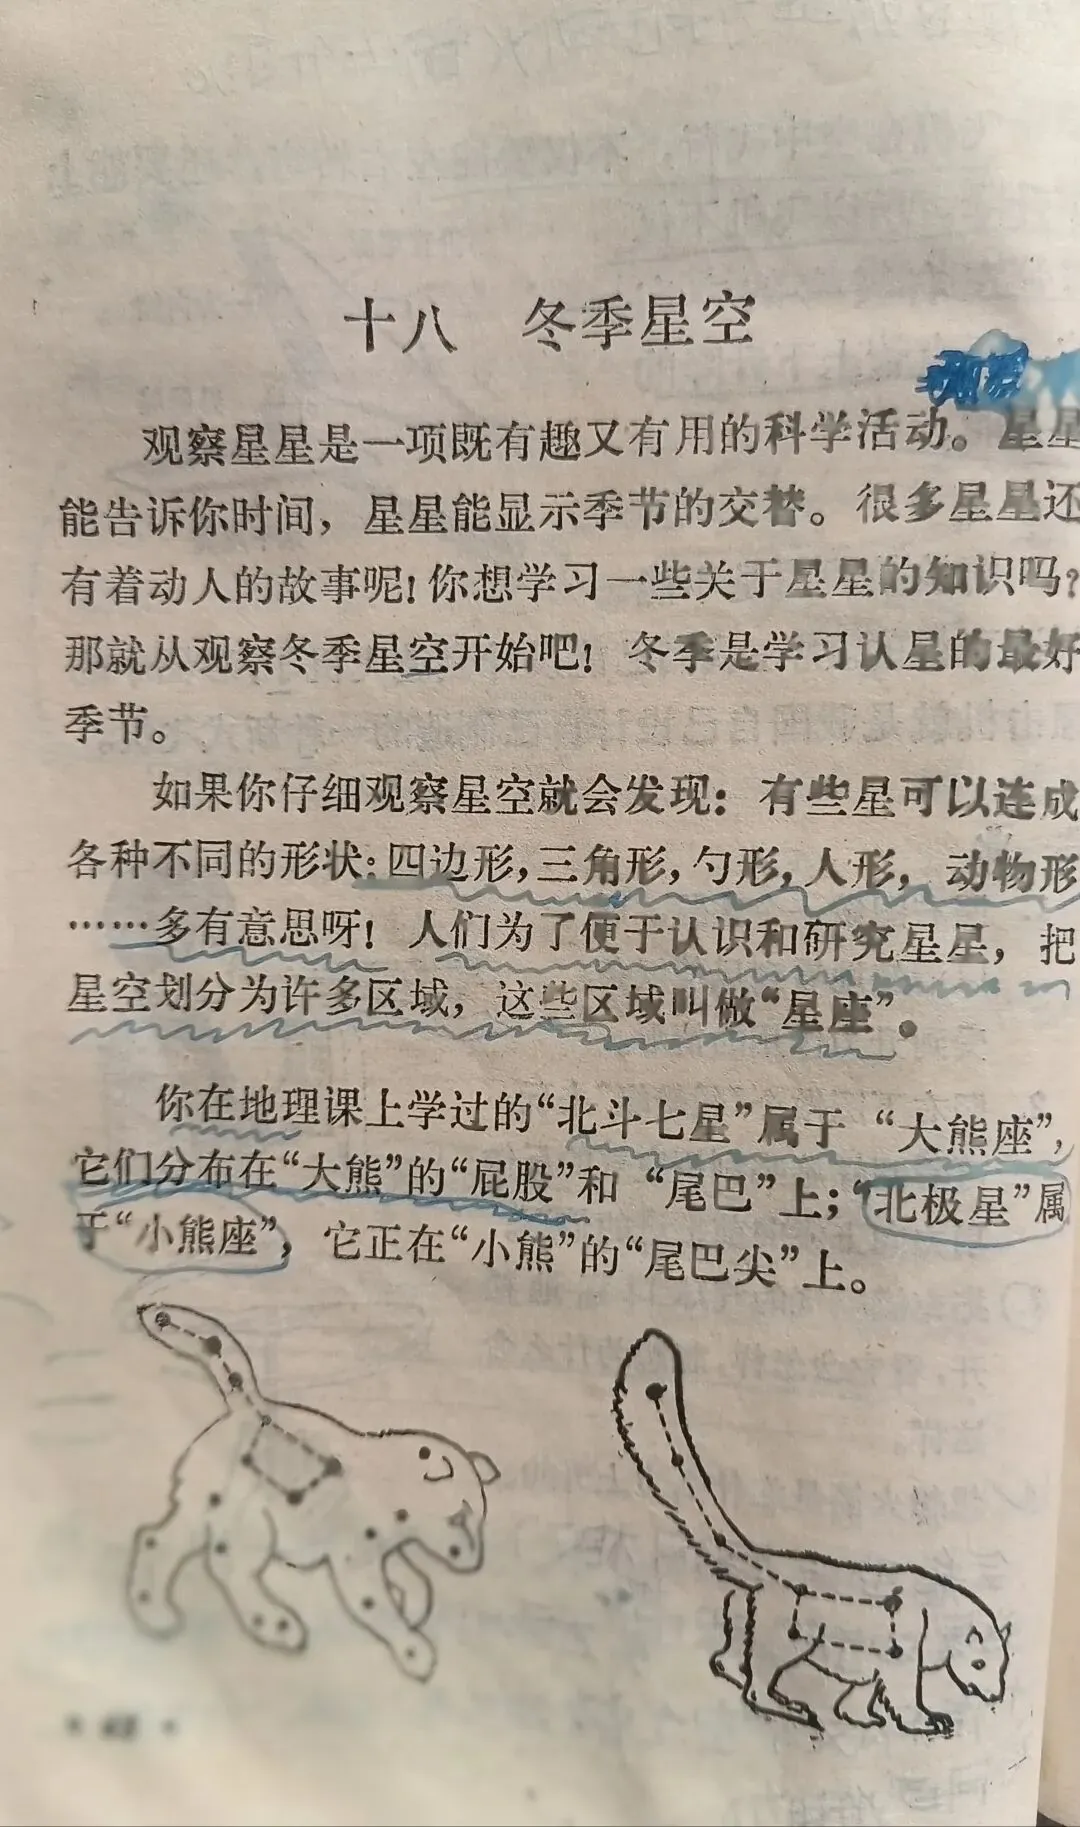 十八 冬季星空
观察星星是一项既有趣又有用的科学活动。星星
能告诉你时间，星星能显示季节的交替。很多星星还
有着动人的故事呢！你想学习一些关于星星的知识吗？
那就从观察冬季星空开始吧！冬季是学习认星的最好
季节。
如果你仔细观察星空就会发现：有些星可以连成
各种不同的形状：四边形，三角形，勺形，人形，动物形
……多有意思呀！人们为了便于认识和研究星星，把
星空划分为许多区域，这些区域叫做“星座”。
你在地理课上学过的“北斗七星”属于“大熊座”，
它们分布在“大熊”的“屁股”和“尾巴”上；“北极星”属
于“小熊座”，它正在“小熊”的“尾巴尖”上。